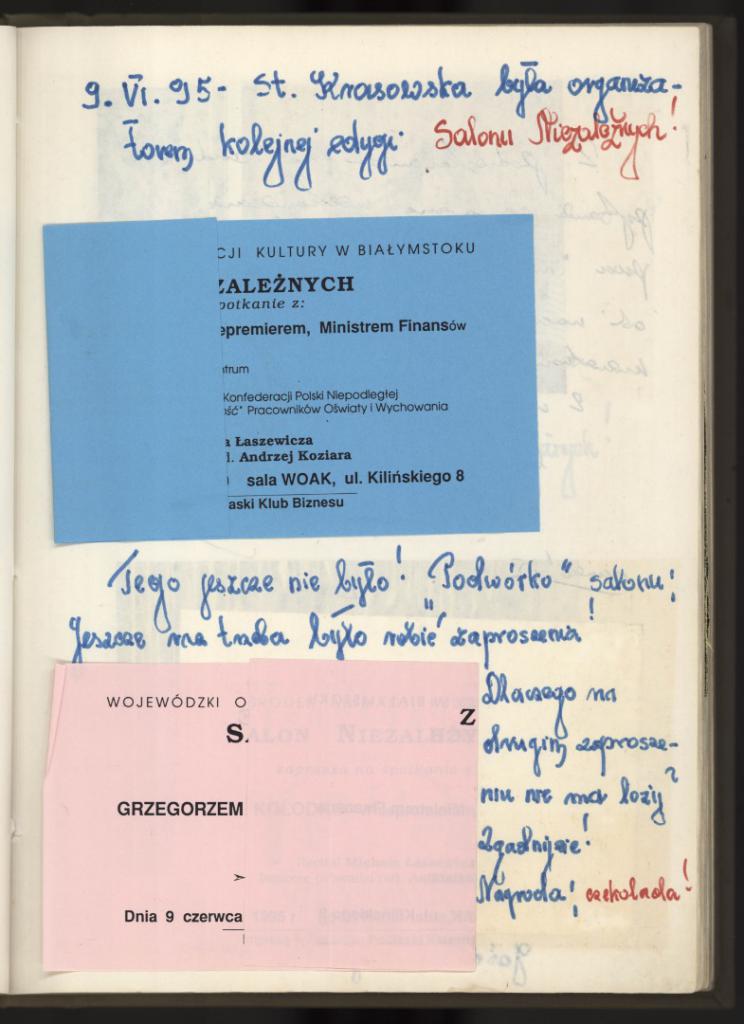 9. VI. 95 - St. Krasowska była organiza-
torem kolejnej edycji Salonu Niezależnych!
CJI KULTURY W BIAŁYMSTOKU
ZALEŻNYCH
potkanie z:
epremierem, Ministrem Finansów
ntrum
Konfederacji Polski Niepodległej
ość" Pracowników Oświaty i Wychowania
a Łaszewicza
l. Andrzej Koziara
sala WOAK, ul. Kilińskiego 8
aski Klub Biznesu
Tego jeszcze nie było! "Podwórko" salonu!
Jeszcze trzeba było robić zaproszenia!
WOJEWÓDZKI O
S. Z
GRZEGORZEM
➤
Dnia 9 czerwca
Dlaczego na
drugim zaprosze-
niu nie ma loży?
Zgadnijcie!
Nagroda! czekolada!